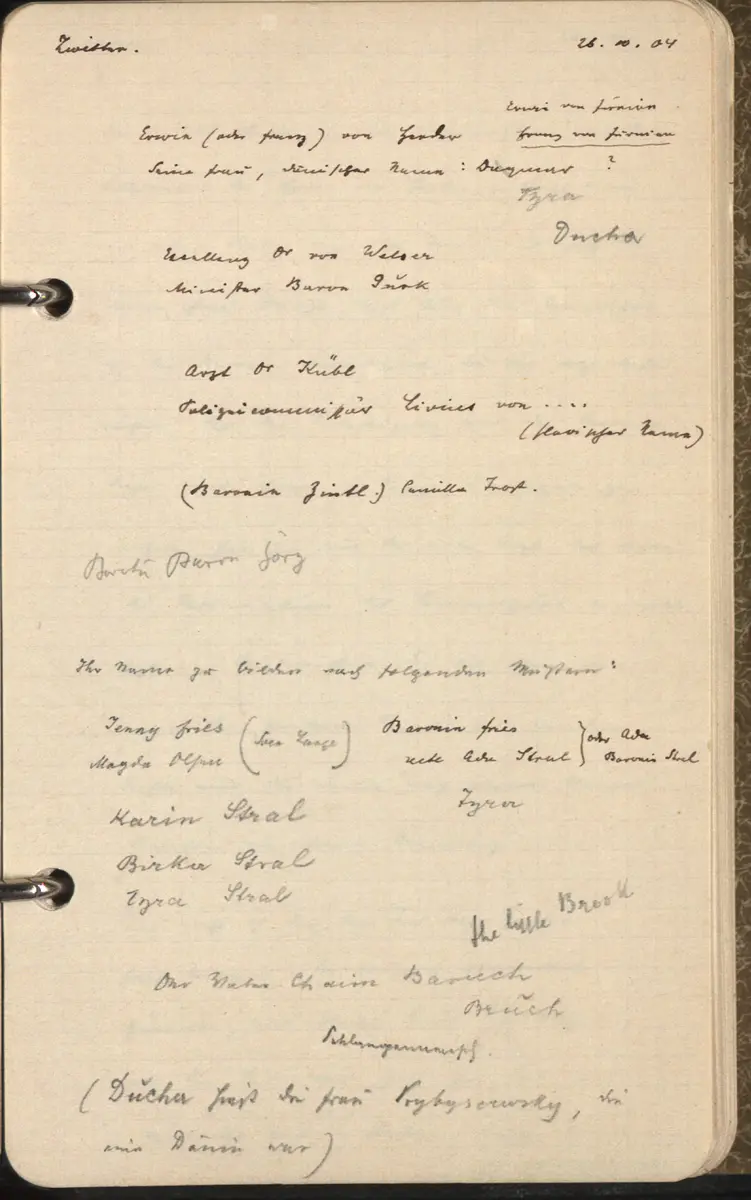 Zwitter.
26. 10. 04
Erwin von Fürnian
Erwin (oder Franz) von Herder Franz von Fürnian
Seine Frau, dänischer Name: Dagmar ?
Tyra
Ducha
Excellenz Dr von Welser
Minister Baron Türk
Arzt Dr Kübl
Polizeicommissär Livius von ....
(slavischer Name)
(Baronin Zintl.) Camilla Trost.
Baron Görz
Ihr Name zu bilden nach folgenden Mustern:
Jenny Fries (Sven Lange) Baronin Fries } oder Ada
Magda Olsen recte Ada Stral } Baronin Stral
Karin Stral Tyra
Birka Stral
Tyra Stral
the little Brook
Der Vater Chaim Baruch
Brŭch
Schlangenmensch.
(Dŭcha hieß die Frau Przybyszewsky, die
eine Dänin war)